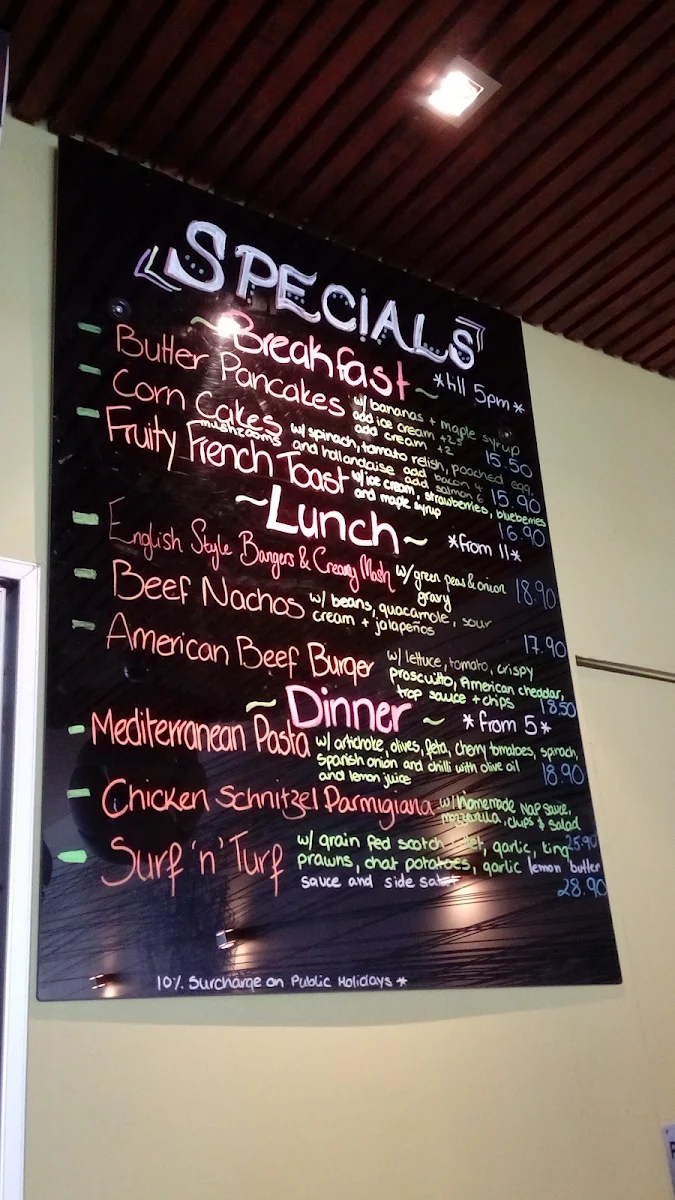 SPECIALS
~Breakfast~ *till 5pm*
Butter Pancakes w/ bananas + maple syrup
add ice cream +2.5
add cream +2 15.50
Corn Cakes w/ spinach, tomato relish, poached egg,
mushrooms and hollandaise add bacon 4
add salmon 6 15.90
Fruity French Toast w/ ice cream, strawberries, blueberries
and maple syrup 16.90
~Lunch~ *from 11*
English Style Bangers & Creamy Mash w/ green peas & onion
gravy 18.90
Beef Nachos w/ beans, guacamole, sour
cream + jalapeños 17.90
American Beef Burger w/ lettuce, tomato, crispy
proscuitto, American cheddar,
trop sauce + chips 18.50
~Dinner~ *from 5*
Mediterranean Pasta w/ artichoke, olives, feta, cherry tomatoes, spinach,
spanish onion and chilli with olive oil
and lemon juice 18.90
Chicken Schnitzel Parmigiana w/ homemade nap sauce,
mozzarella, chips & salad 25.90
Surf 'n' Turf w/ grain fed scotch garlic, king
prawns, chat potatoes, garlic lemon butter
sauce and side salad 28.90
10% Surcharge on Public Holidays *